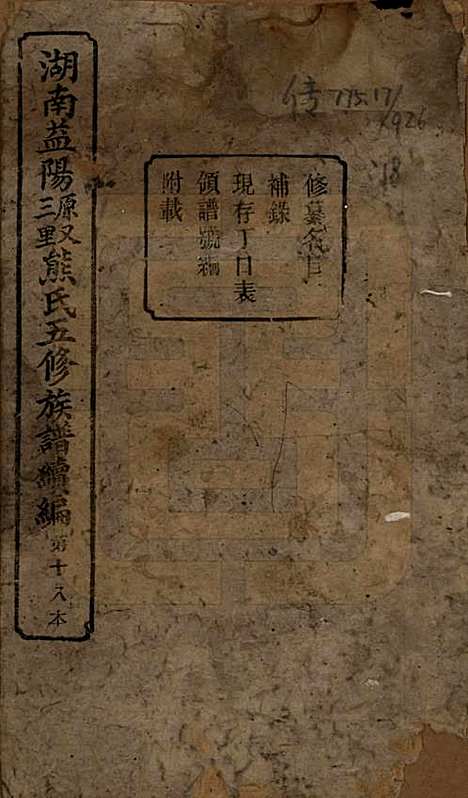 湖南益陽三里源又熊氏五修族譜續編 第十八本
修墓名目
補錄
現存丁口表
領譜號編
附載
传 775.17/
926
:18